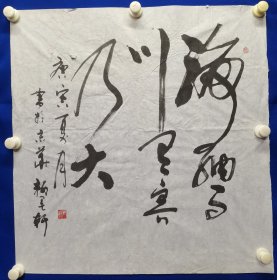 海纳百
川有容
乃大
庚寅夏月
书於京华